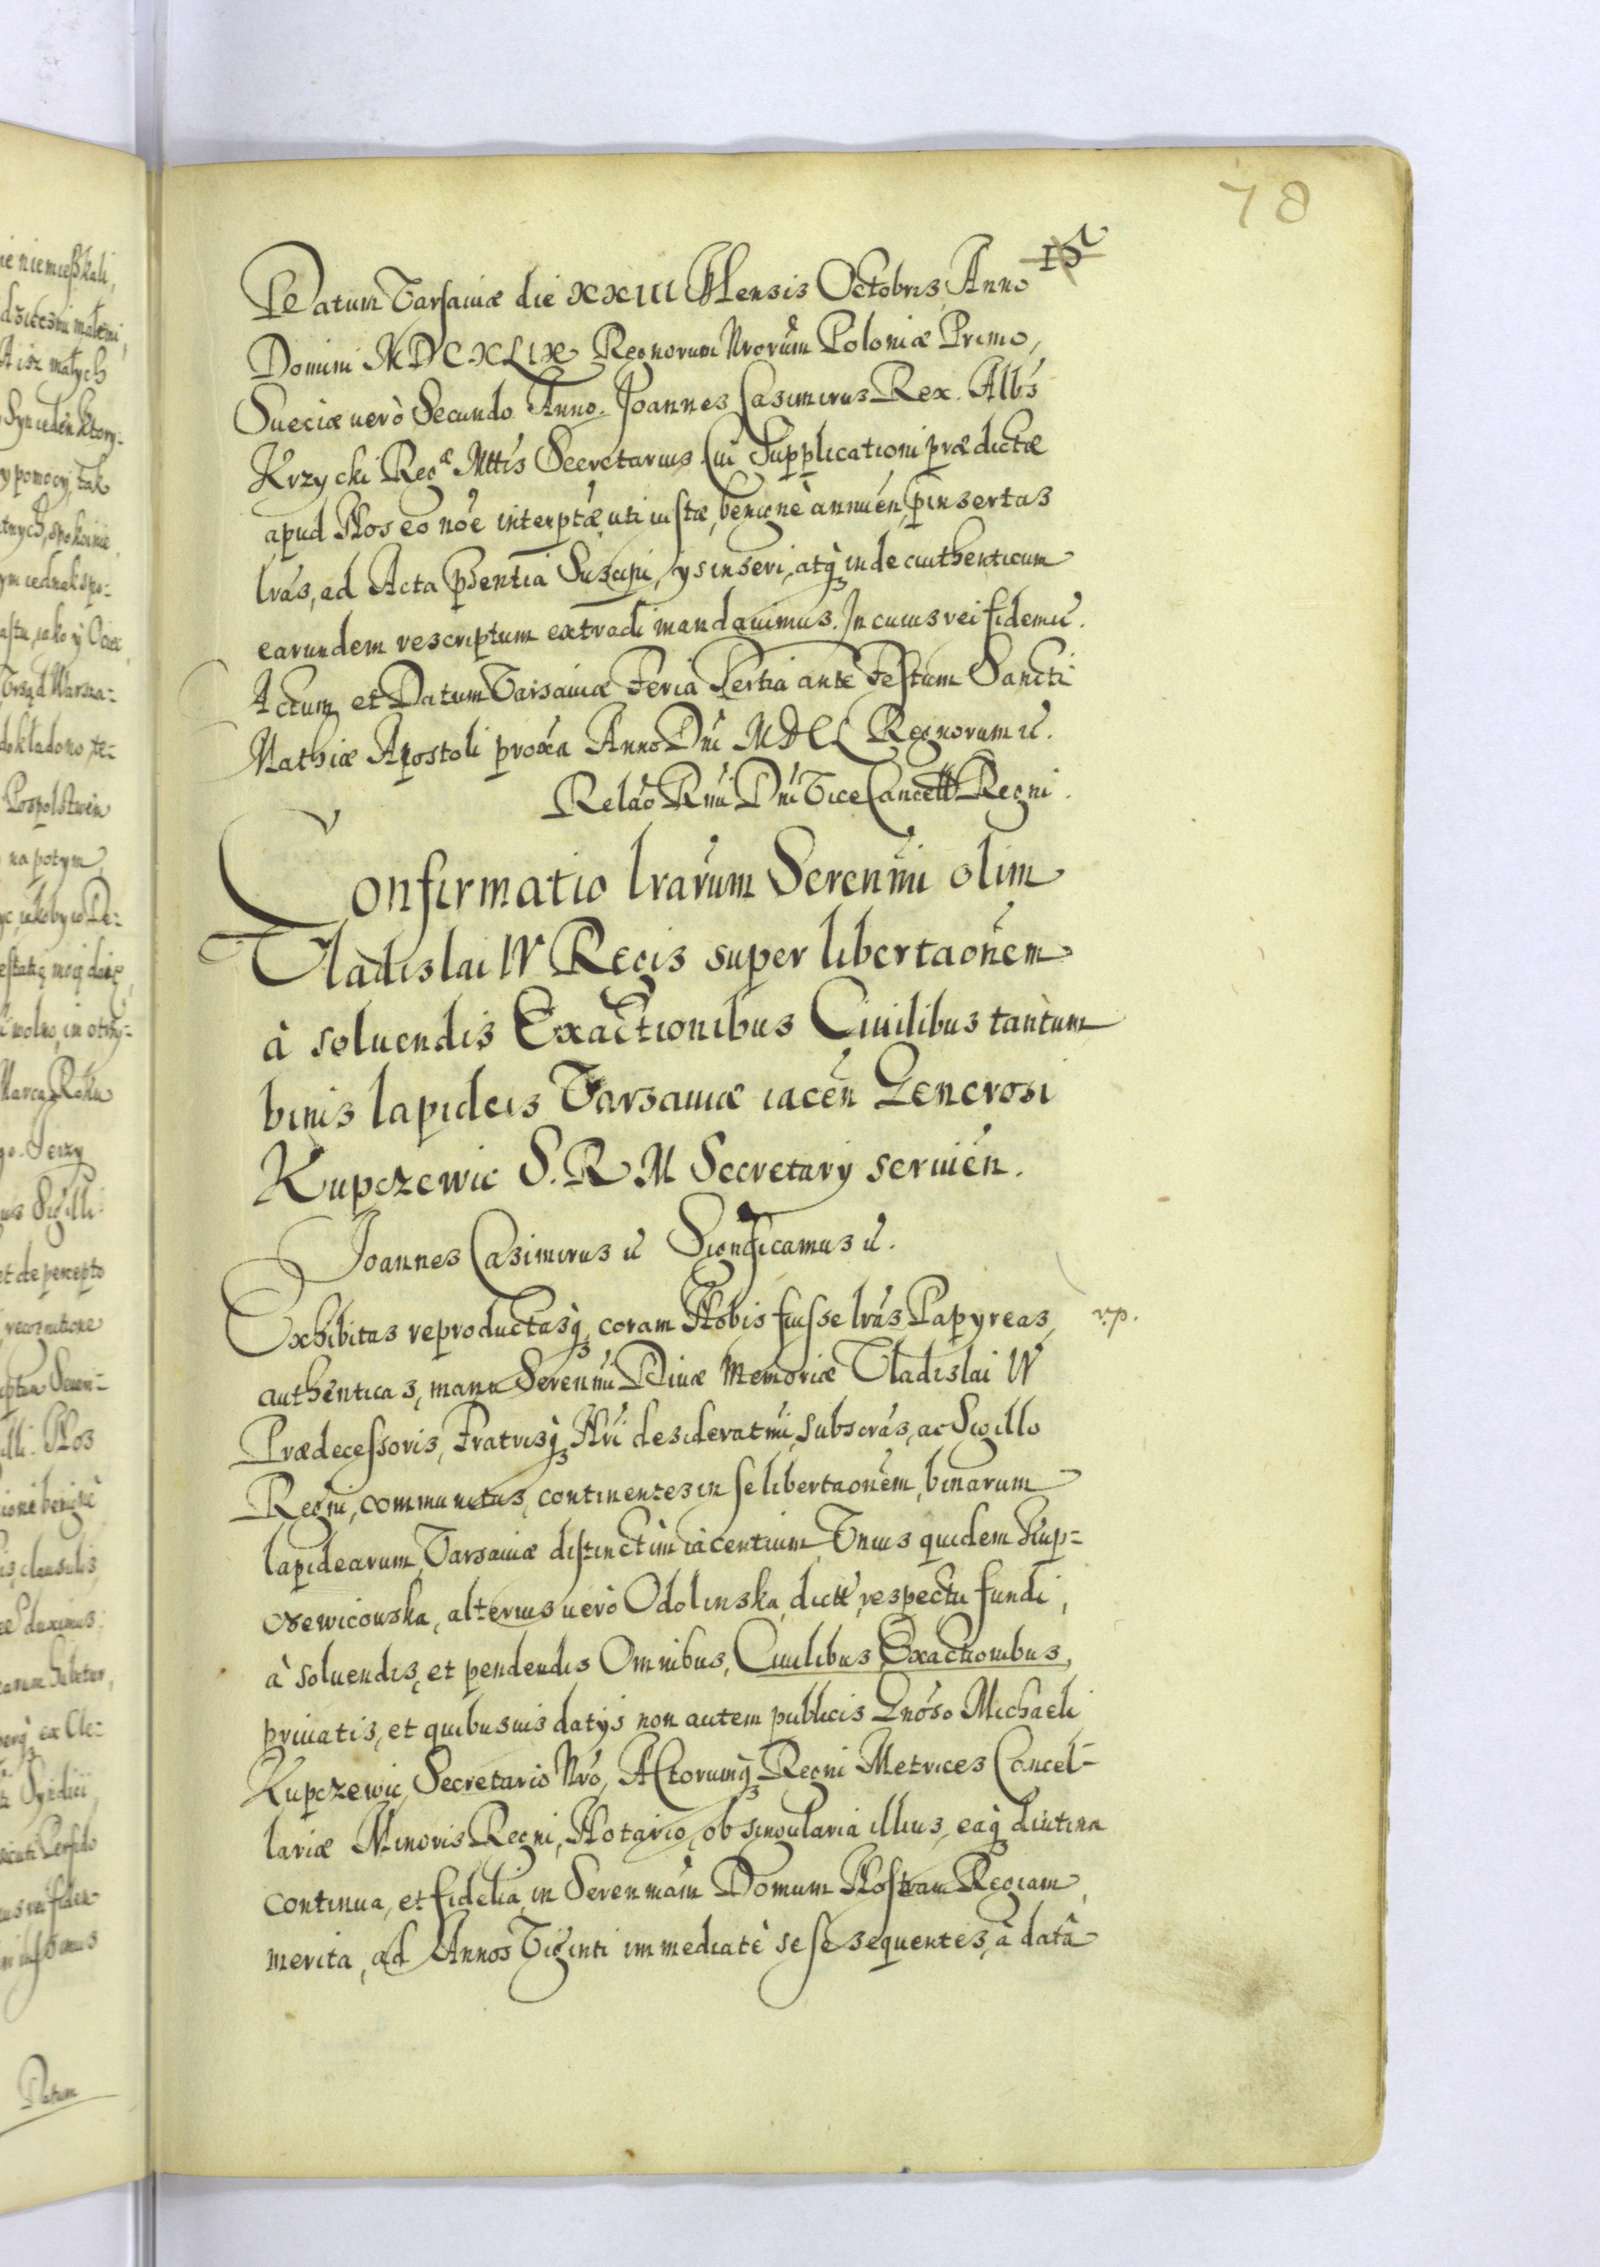 78
Datum Varsaviæ die XXIII Mensis Octobris, Anno
Domini MDCXLIX Regnorum Nrorum Poloniæ Primo,
Sueciæ verò Secundo Anno. Joannes Casimirus Rex. Albs
Krzycki Regæ Mttis Secretarius Cui Supplicationi prædictæ
apud Nos eo noe interptæ, uti iustæ, benignè annuen, pinsertas
lras, ad Acta pńsentia Suscipi, ys inseri, atq inde authenticum
earundem rescriptum extradi mandavimus. In cuius rei fidem
Actum et Datum Varsaviæ Feria Tertia ante Festum Sancti
Mathiæ Apostoli proxa Anno Dni MDCL Regnorum
Relao Rmi Dni Vice Cancell Regni.
Confirmatio lrarum Serenmi olim
Vladislai IV Regis super libertaonem
à solvendis Exactionibus Civilibus tantum
binis lapideis Varsaviæ iacen Generosi
Kupczewic S. R. M Secretarij servien.
Joannes Casimirus Significamus
Exhibitas reproductasq, coram Nobis fuisse lras Papyreas, rp.
authenticas, manu Serenmi Divæ Memoriæ Vladislai IV
Prædecessoris, Fratrisq Nri desideratmi, subscras, ac Sigillo
Regni, communitas, continentes in se libertaonem, binarum
lapidearum, Varsaviæ distinctim iacentium, Unius quidem
alterius verò Odolinska, dictt, respectu fundi,
à solvendis, et pendendis Omnibus, Civilibus Exactionibus,
privatis, et quibusvis datijs non autem publicis Gnoso Michaeli
Kupczewic, Secretario Nro, Actorumq Regni Metrices Cancel-
lariæ Minoris Regni, Notario, ob singularia illius, eaq diutina
continua, et fidelia, in Serenmam Domum Nostram Regiam,
merita, ad Annos Viginti immediatè sese sequentes, à datâ